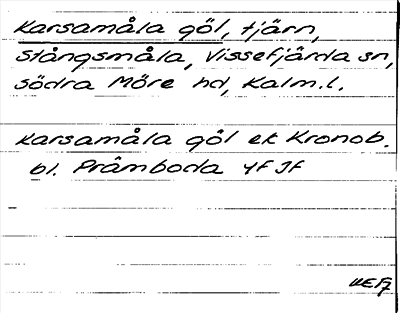 Karsamåla göl, tjärn,
Stångsmåla, Vissefjärda sn,
södra Möre hd, Kalm.l.
Karsamåla göl ek Kronob.
bl. Pråmboda YF JF